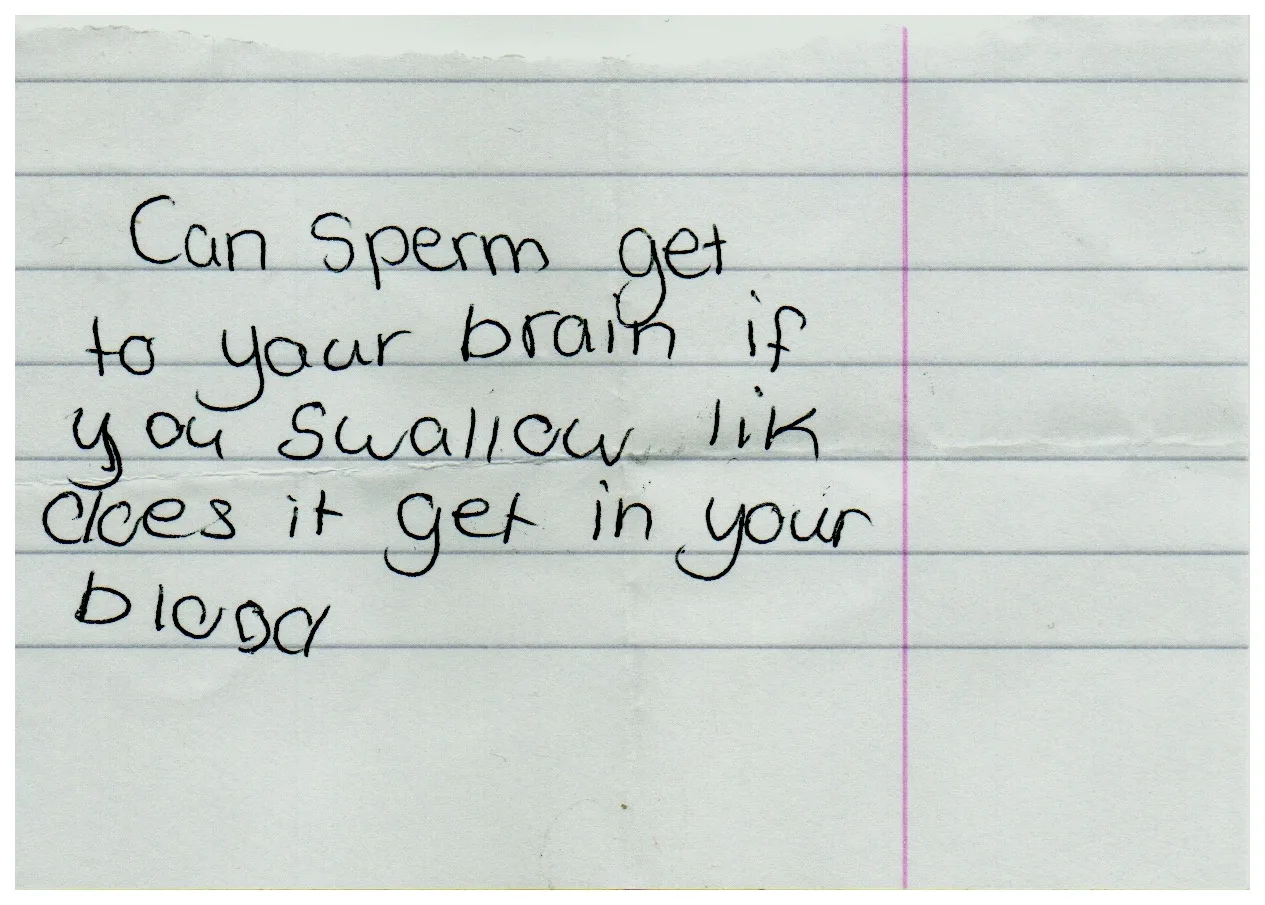 Can sperm get
to your brain if
you swallow lik
does it get in your
blood